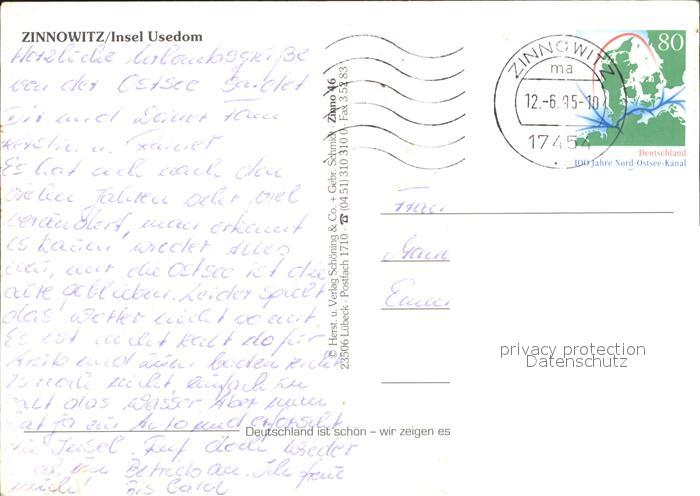 ZINNOWITZ/Insel Usedom
Herzliche Urlaubsgrüße
von der Ostsee sendet
Dir und Deiner Fam
Kerstin u. Rainer
Es hat sich nach den
vielen Jahren sehr viel
verändert, man erkennt
es kaum wieder Alles
neu, nur die Ostsee ist die
alte geblieben. Leider spielt
das Wetter nicht so mit.
Es ist nicht kalt dafür
und zum baden
es noch nicht einfach zu
kalt das Wasser. Aber man
hat ja ein Auto und erforscht
die Insel. Ruf doch wieder
im Betrieb an. Ich freu
mich! Bis bald
© Herst. u. Verlag Schöning & Co. + Gebr. Schmidt · Zinno 46
23506 Lübeck · Postfach 1710 · ☎ (04 51) 310 310 · Fax 3 52 83
ZINNOWITZ
ma
12.-6.95-10
17454
80
Deutschland
100 Jahre Nord-Ostsee-Kanal
Frau
privacy protection
Datenschutz
Deutschland ist schön – wir zeigen es